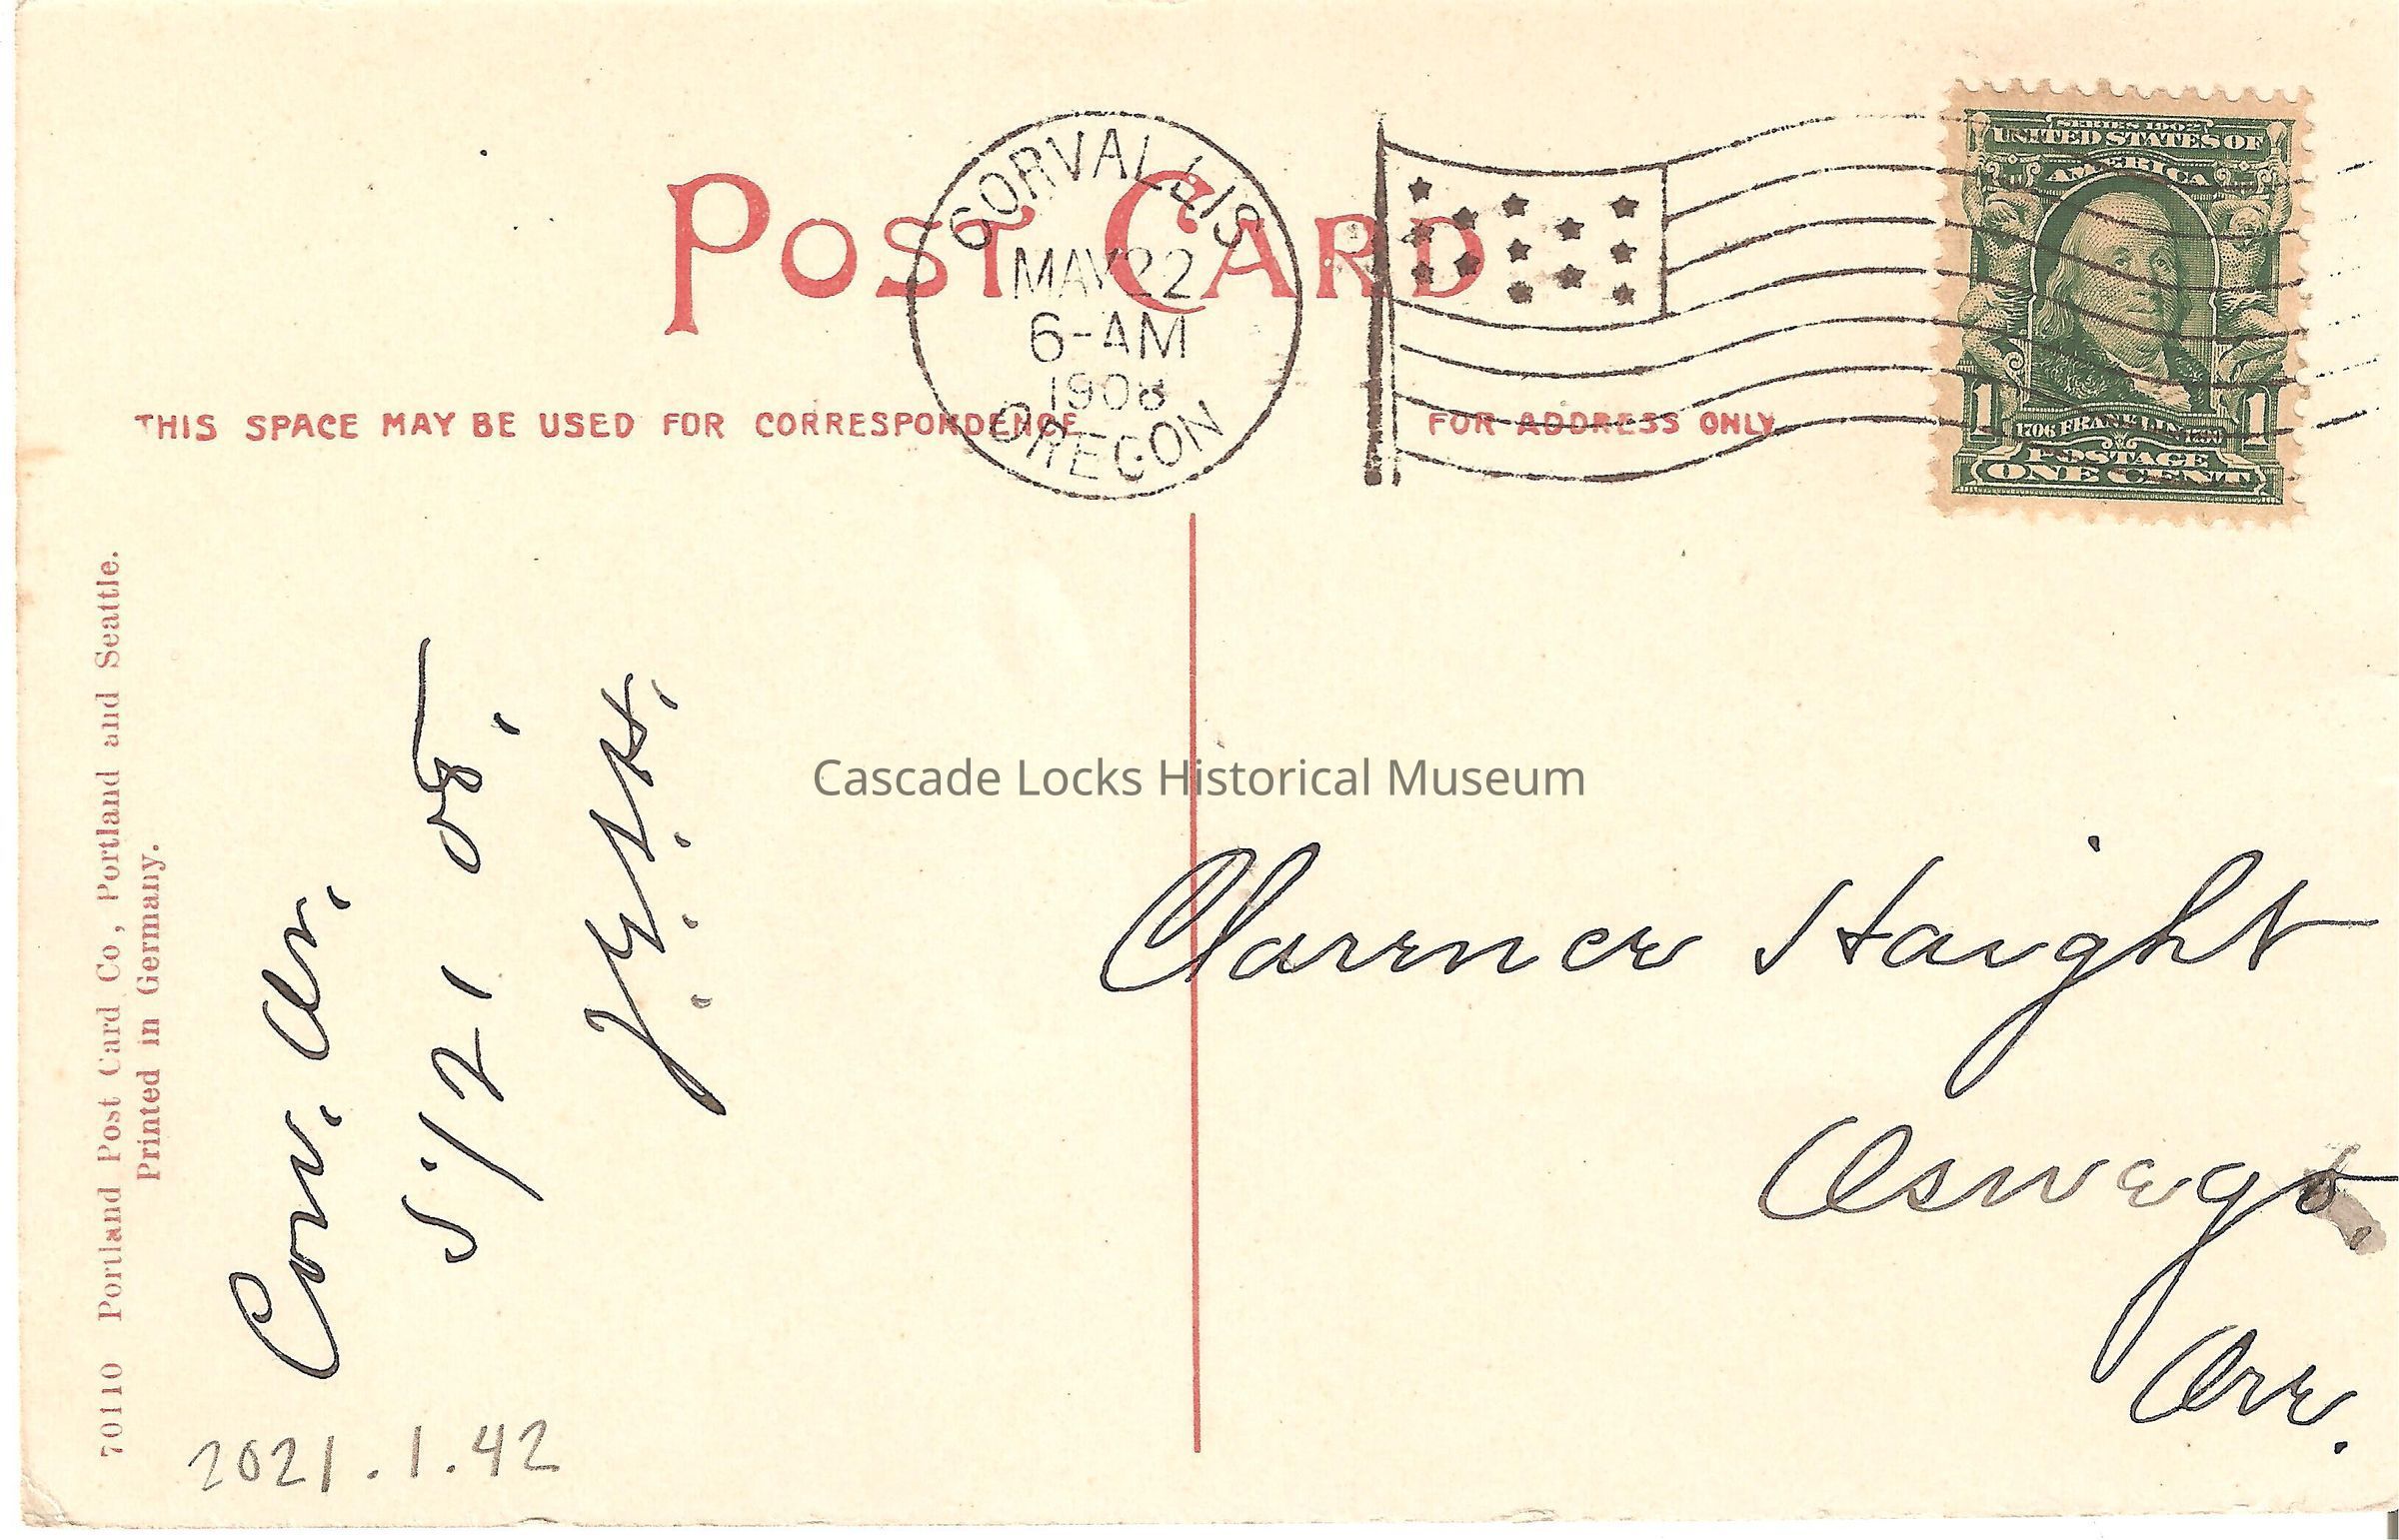 POST CARD
CORVALLIS
MAY 22
6-AM
1908
OREGON
SERIES 1902
UNITED STATES OF
AMERICA
1706 FRANKLIN 1790
1 1
POSTAGE
ONE CENT
THIS SPACE MAY BE USED FOR CORRESPONDENCE
FOR ADDRESS ONLY
70110 Portland Post Card Co, Portland and Seattle.
Printed in Germany.
Corv. Or.
5/21, 08.
Cascade Locks Historical Museum
Clarence Haight
Oswego.
Ore.
2021.1.42